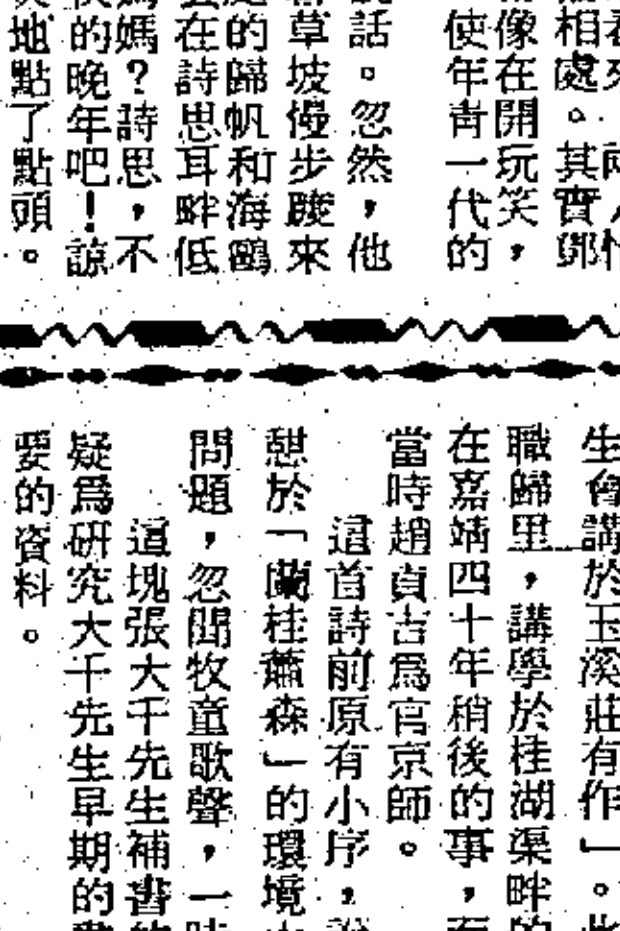 相處。其實鄧
像在開玩笑，
使年靑一代的
話。忽然，他
草坡慢步踱來
的歸帆和海鷗
在詩思耳畔低
媽？詩思，不
的晚年吧！諒
地點了點頭。
生會講於玉溪莊有作」。
職歸里，講學於桂湖渠畔的
在嘉靖四十年稍後的事，
當時趙貞吉爲官京師。
這首詩前原有小序，
憩於「蘭桂蕭森」的環境
問題，忽聞牧童歌聲，一
這塊張大千先生補書
疑爲研究大千先生早期的
要的資料。